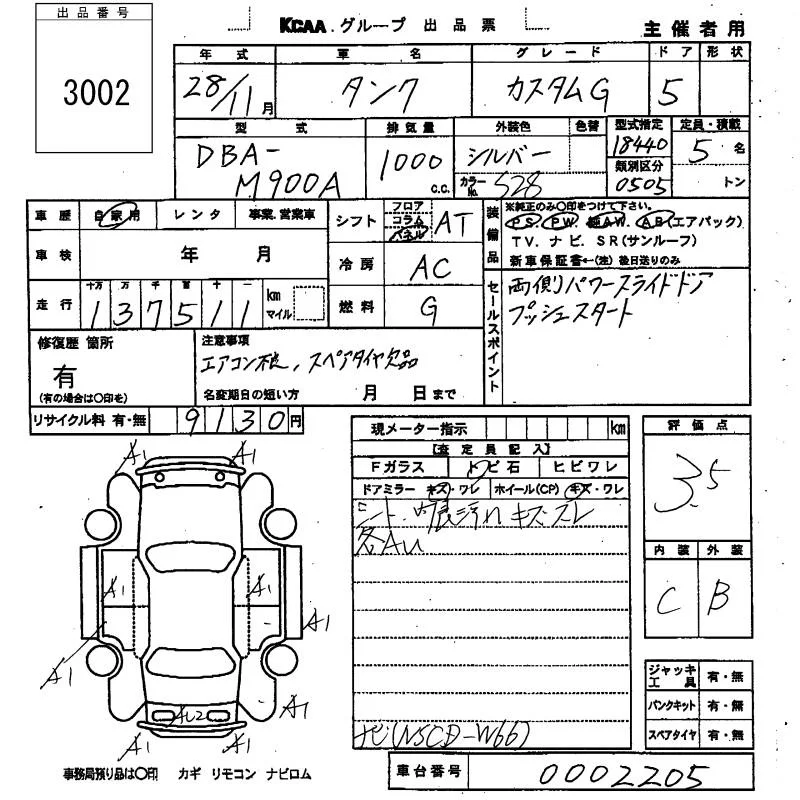 出品番号
3002
KCAA.グループ 出品票
主催者用
年式 車名 グレード ドア 形状
28/11月 タンク カスタムG 5
型式 排気量 外装色 色替 型式指定 定員・積載
DBA-M900A 1000 c.c. シルバー 18440 5名
カラーNo. S28 類別区分 0505 トン
車歴 自家用 レンタ 事業.営業車
シフト フロア コラム パネル AT
装備品 ※純正のみ〇印をつけて下さい。
PS. PW. 純AW. AB(エアバック)
TV. ナビ. SR(サンルーフ)
新車保証書←(注) 後日送りのみ
車検 年 月
冷房 AC
走行 十万 万 千 百 十 一 km マイル
137511
燃料 G
セールスポイント
両側パワースライドドア
プッシュスタート
修復歴 箇所
有
(有の場合は〇印を)
注意事項
エアコン不良、スペアタイヤ欠品
名変期日の短い方 月 日まで
リサイクル料 有・無 9130円
現メーター指示 km
【査定員記入】
Fガラス トビ石 ヒビワレ
ドアミラー キズ・ワレ ホイール(CP) キズ・ワレ
シート、内装汚れ キズ スレ
各AU
ナビ(NSCD-W66)
評価点
3.5
内装 外装
C B
ジャッキ工具 有・無
パンクキット 有・無
スペアタイヤ 有・無
A1 A1
A1 A1
A1
A1
A1
A1 A1
事務局預り品は〇印 カギ リモコン ナビロム
車台番号 0002205